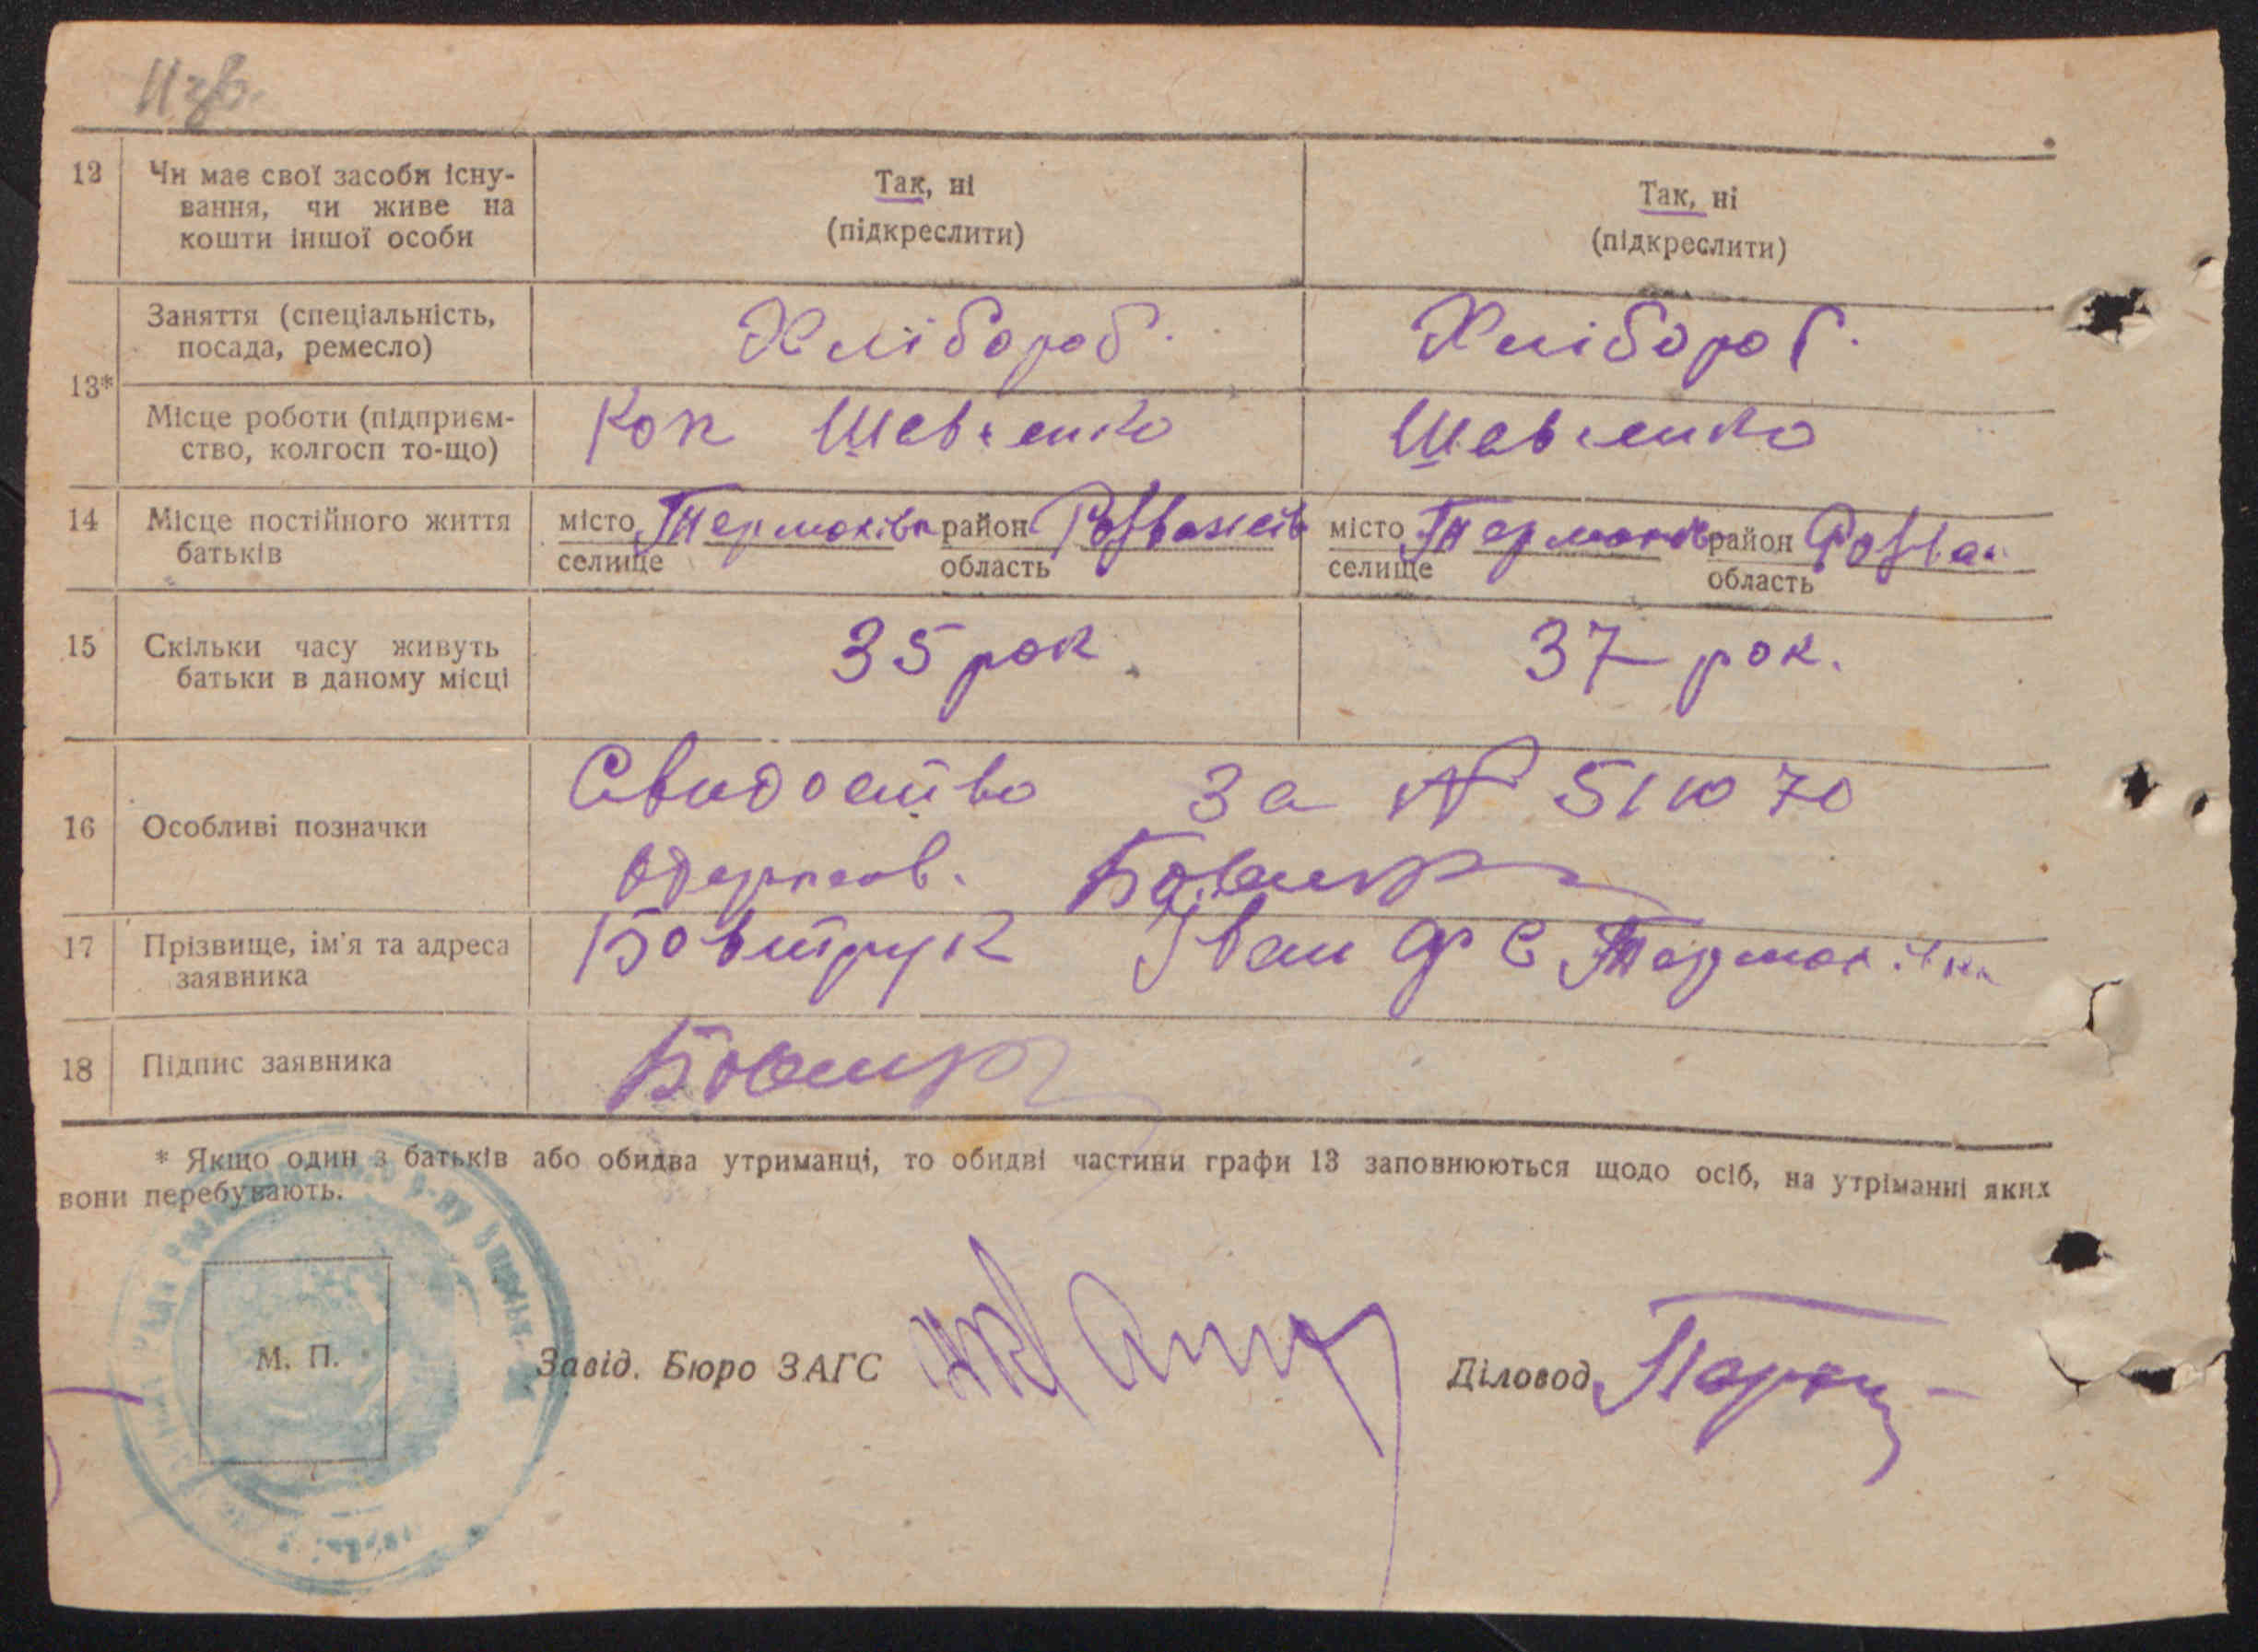 11 зв.
12 Чи має свої засоби існу-
вання, чи живе на
кошти іншої особи
Так, ні
(підкреслити)
Так, ні
(підкреслити)
13*
Заняття (спеціальність,
посада, ремесло)
Хлібороб.
Хлібороб.
Місце роботи (підприєм-
ство, колгосп то-що)
Кол Шевченко
Шевченко
14 Місце постійного життя
батьків
місто Термахівка район Розважів
селище область
місто район Розваж
селище область
15 Скільки часу живуть
батьки в даному місці
35 рок
37 рок.
16 Особливі позначки
Свидоство за №
одержав.
17 Прізвище, ім'я та адреса
заявника
Бовтрук Іван Ф С
18 Підпис заявника
* Якщо один з батьків або обидва утриманці, то обидві частини графи 13 заповнюються щодо осіб, на утріманні яких
вони перебувають.
М. П.
Завід. Бюро ЗАГС
Діловод